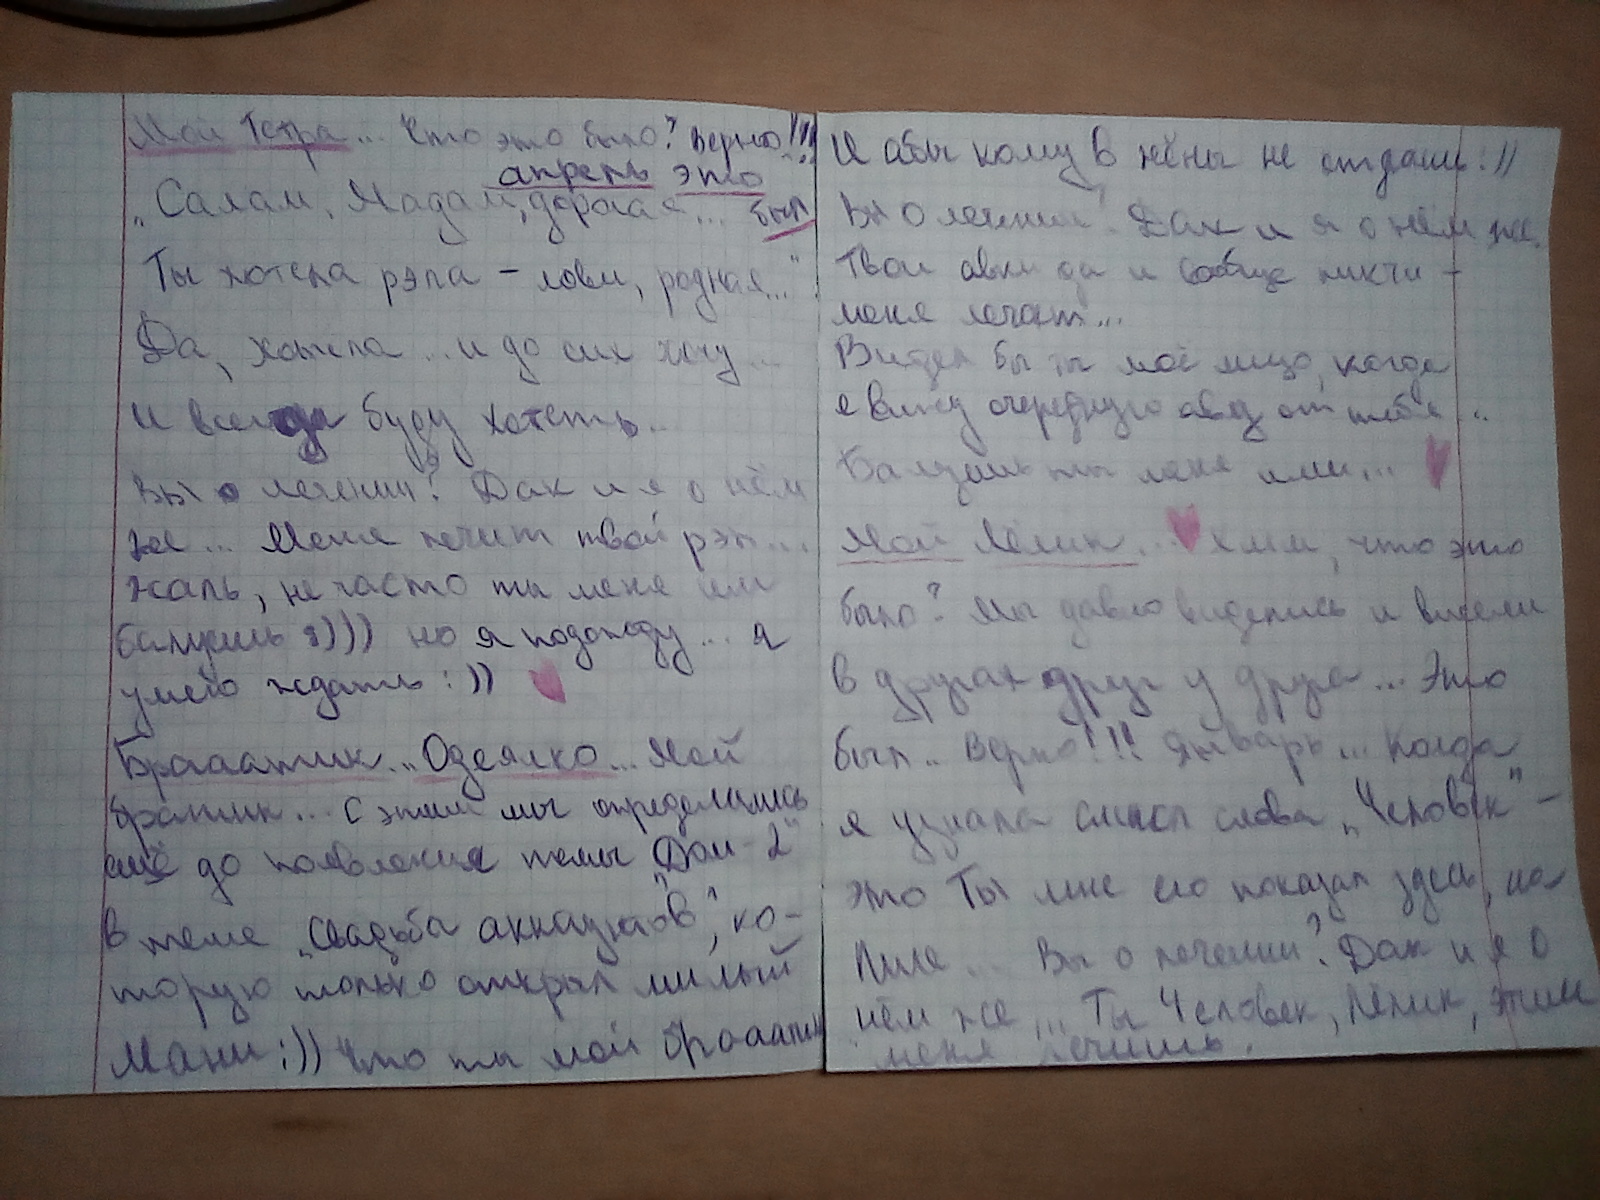 Мой Тетра... Что это было? Верно!!!
апрель это
„Салам, Мадам, дорогая... был
Ты хотела рэпа – лови, родная..."
Да, хотела... и до сих хочу...
И всегда буду хотеть..
Вы о лечении? Дак и я о нём
же... Меня лечит твой рэп...
жаль, не часто ты меня им
балуешь :))) но я подожду... я
умею ждать :))
Брааатик... Одеялко... Мой
братик... С этим мы определились
ещё до появления темы „Дом-2"
в теме „Свадьба аккаунтов", ко-
торую только открыл милый
Мани :)) Что ты мой брааатик
И абы кому в жёны не отдашь :))
Вы о лечении? Дак и я о нём же.
Твои авы да и вообще пикчи –
меня лечат...
Видел бы ты моё лицо, когда
я вижу очередную аву от тебя...
Балуешь ты меня ими...
Мой Лёлик... хмм, что это
было? Мы давно виделись и висели
в друзьях друг у друга... Это
был.. Верно!!! Январь... Когда
я узнала смысл слова „Человек" –
это Ты мне его показал здесь, на
Вы о лечении? Дак и я о
нём же... Ты Человек, Лёлик, этим
меня лечишь.